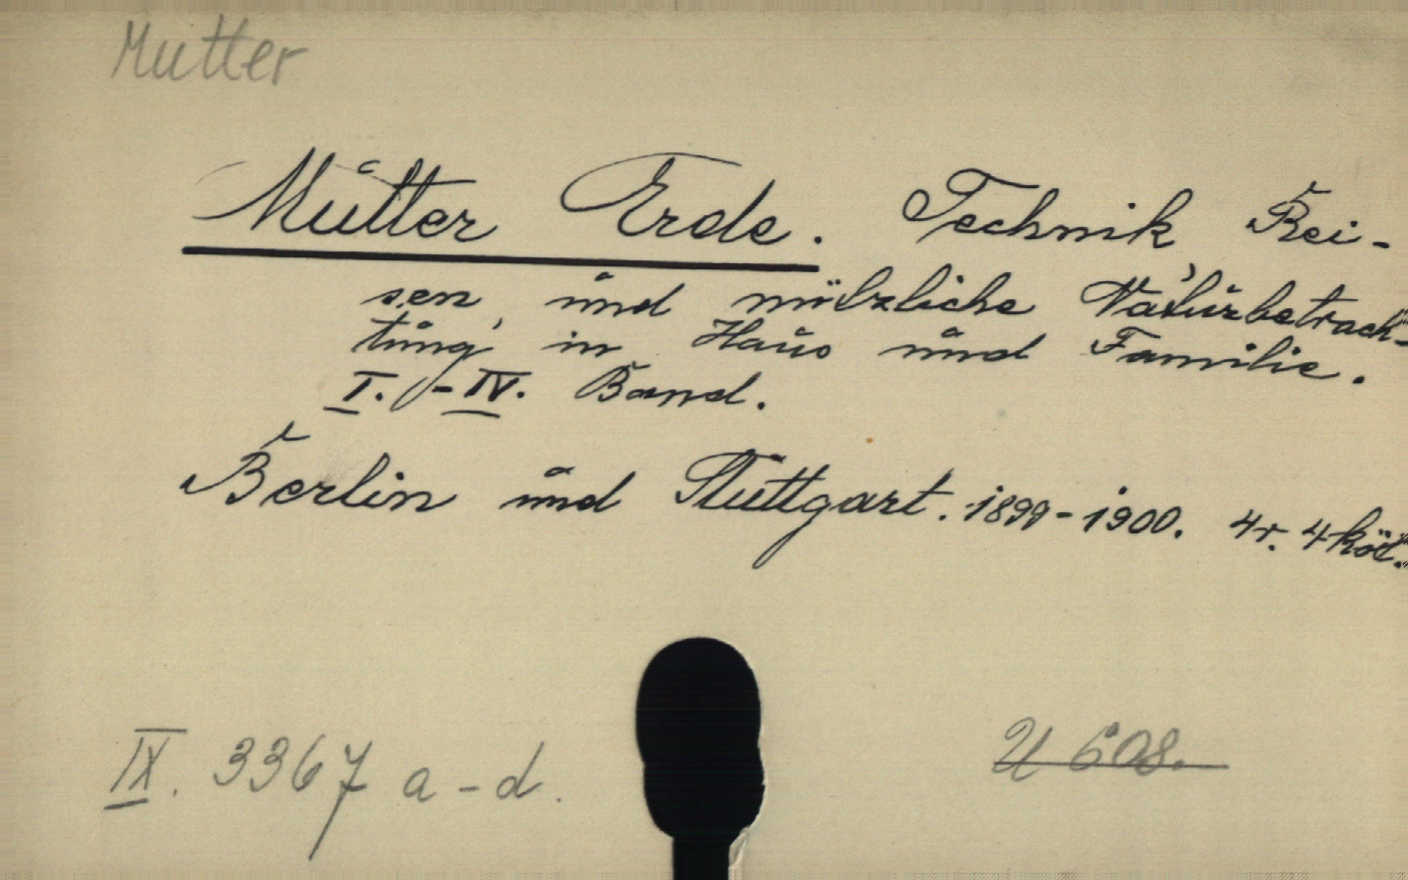 Mutter
Mutter Erde. Technik, Rei-
sen, und nützliche Naturbetrach-
tung, in Haus und Familie.
I. - IV. Band.
Berlin und Stuttgart. 1899-1900. 4r. 4 köt.
IX. 3367 a-d.
U 608.